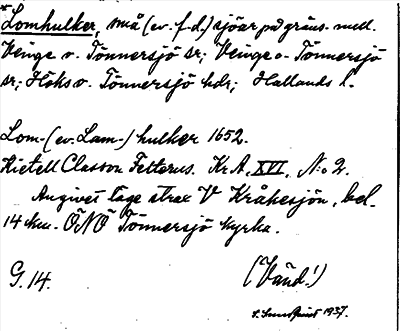 *Lomhulker, små (ev. f.d.) sjöar på gräns. mell.
Veinge o. Tönnersjö sr; Veinge o. Tönnersjö
sr; Höks o. Tönnersjö hdr; Hallands l.
Lom- (ev. Lam-) hulker 1652.
Kietell Classon Felterus. Kr A, XVI, N:o 2.
Angives läge strax V Kråkesjön, bel.
14 km. ÖNÖ Tönnersjö kyrka.
G. 14. (Vänd!)
1937.